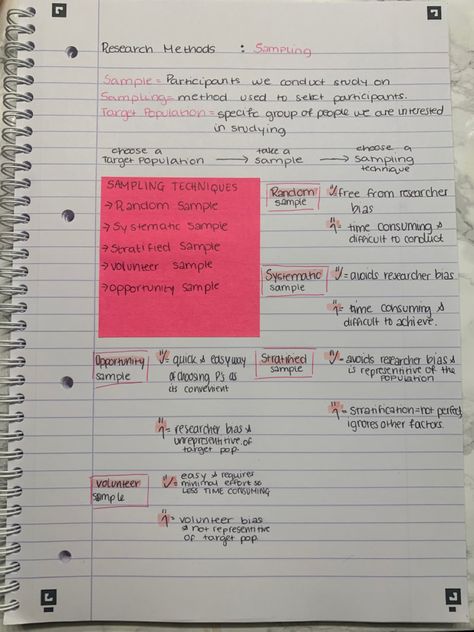 Research Methods : Sampling
Sample = Participants we conduct study on
Sampling = method used to select participants.
Target Population = specific group of people we are interested
in studying
choose a Target Population → take a sample → choose a sampling technique
SAMPLING TECHNIQUES
→ Random sample
→ Systematic sample
→ Stratified sample
→ volunteer sample
→ opportunity sample
Random
sample
"✓" = free from researcher
bias
"x" = time consuming &
difficult to conduct
Systematic
sample
"✓" = avoids researcher bias
"x" = time consuming &
difficult to achieve.
Opportunity
sample
"✓" = quick & easy way
of choosing P's as
its convenient
"x" = researcher bias &
unrepresentitive of
target pop.
Stratified
sample
"✓" = avoids researcher bias &
is representitive of the
population
"x" = Stratification = not perfect,
ignores other factors.
volunteer
sample
"✓" = easy & requires
minimal effort so
LESS TIME CONSUMING
"x" = volunteer bias
& not representitive
of target pop.